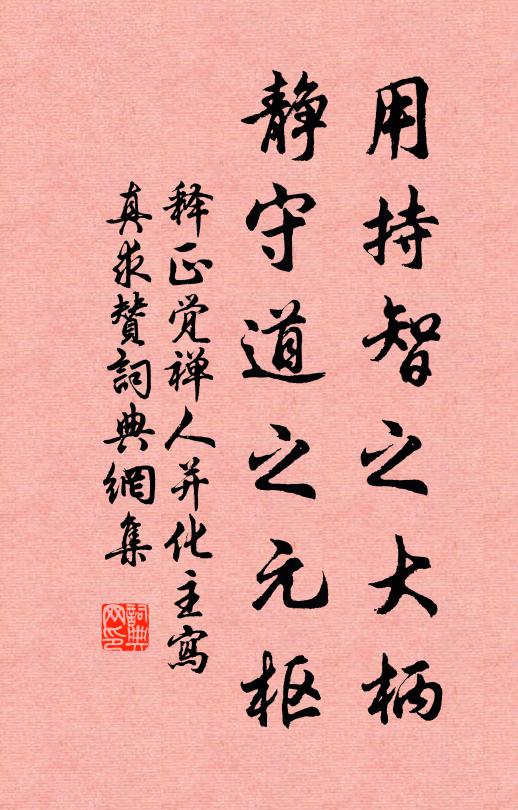 用持智之大柄
静守道之元枢
释正觉禅人并化主寫
真求赞詞典網集
詞典网印